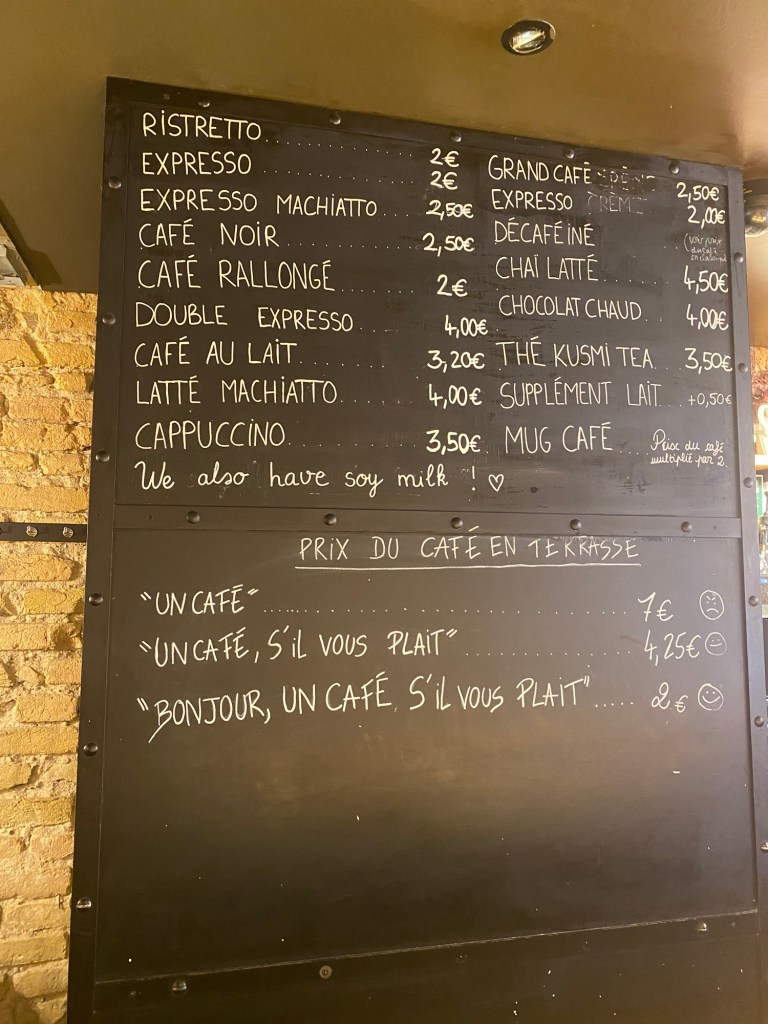 RISTRETTO.................... 2€
EXPRESSO.................... 2€
EXPRESSO MACHIATTO... 2,50€
CAFÉ NOIR............ 2,50€
CAFÉ RALLONGÉ......... 2€
DOUBLE EXPRESSO.... 4,00€
CAFÉ AU LAIT.......... 3,20€
LATTÉ MACHIATTO....... 4,00€
CAPPUCCINO........... 3,50€
We also have soy milk ! ♡
GRAND CAFÉ CRÈME 2,50€
EXPRESSO CRÈME 2,00€
DÉCAFÉINÉ
CHAÏ LATTÉ.... 4,50€
CHOCOLAT CHAUD.. 4,00€
THÉ KUSMI TEA... 3,50€
SUPPLÉMENT LAIT.. +0,50€
MUG CAFÉ.... Prix du café
multiplié par 2
PRIX DU CAFÉ EN TERRASSE
"UN CAFÉ"................................ 7€
"UN CAFÉ, S'iL VOUS PLAIT"................ 4,25€
"BONJOUR, UN CAFÉ, S'iL VOUS PLAIT"..... 2€